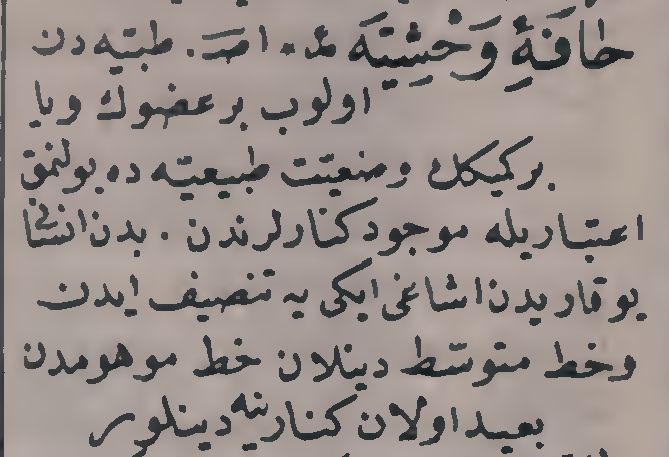 حافهٔ وحشیّه ع. ا‍. طبّیه دن
اولوب بر عضوك ویا
بر كمیكك وضعیّت طبیعیّه ده بولنمق
اعتباریله موجود كنارلرندن. بدن انسانی
یوقاریدن اشاغی ایكی یه تنصیف ایدن
وخط متوسّط دینلان خط موهومدن
بعید اولان كنارینه دینلور